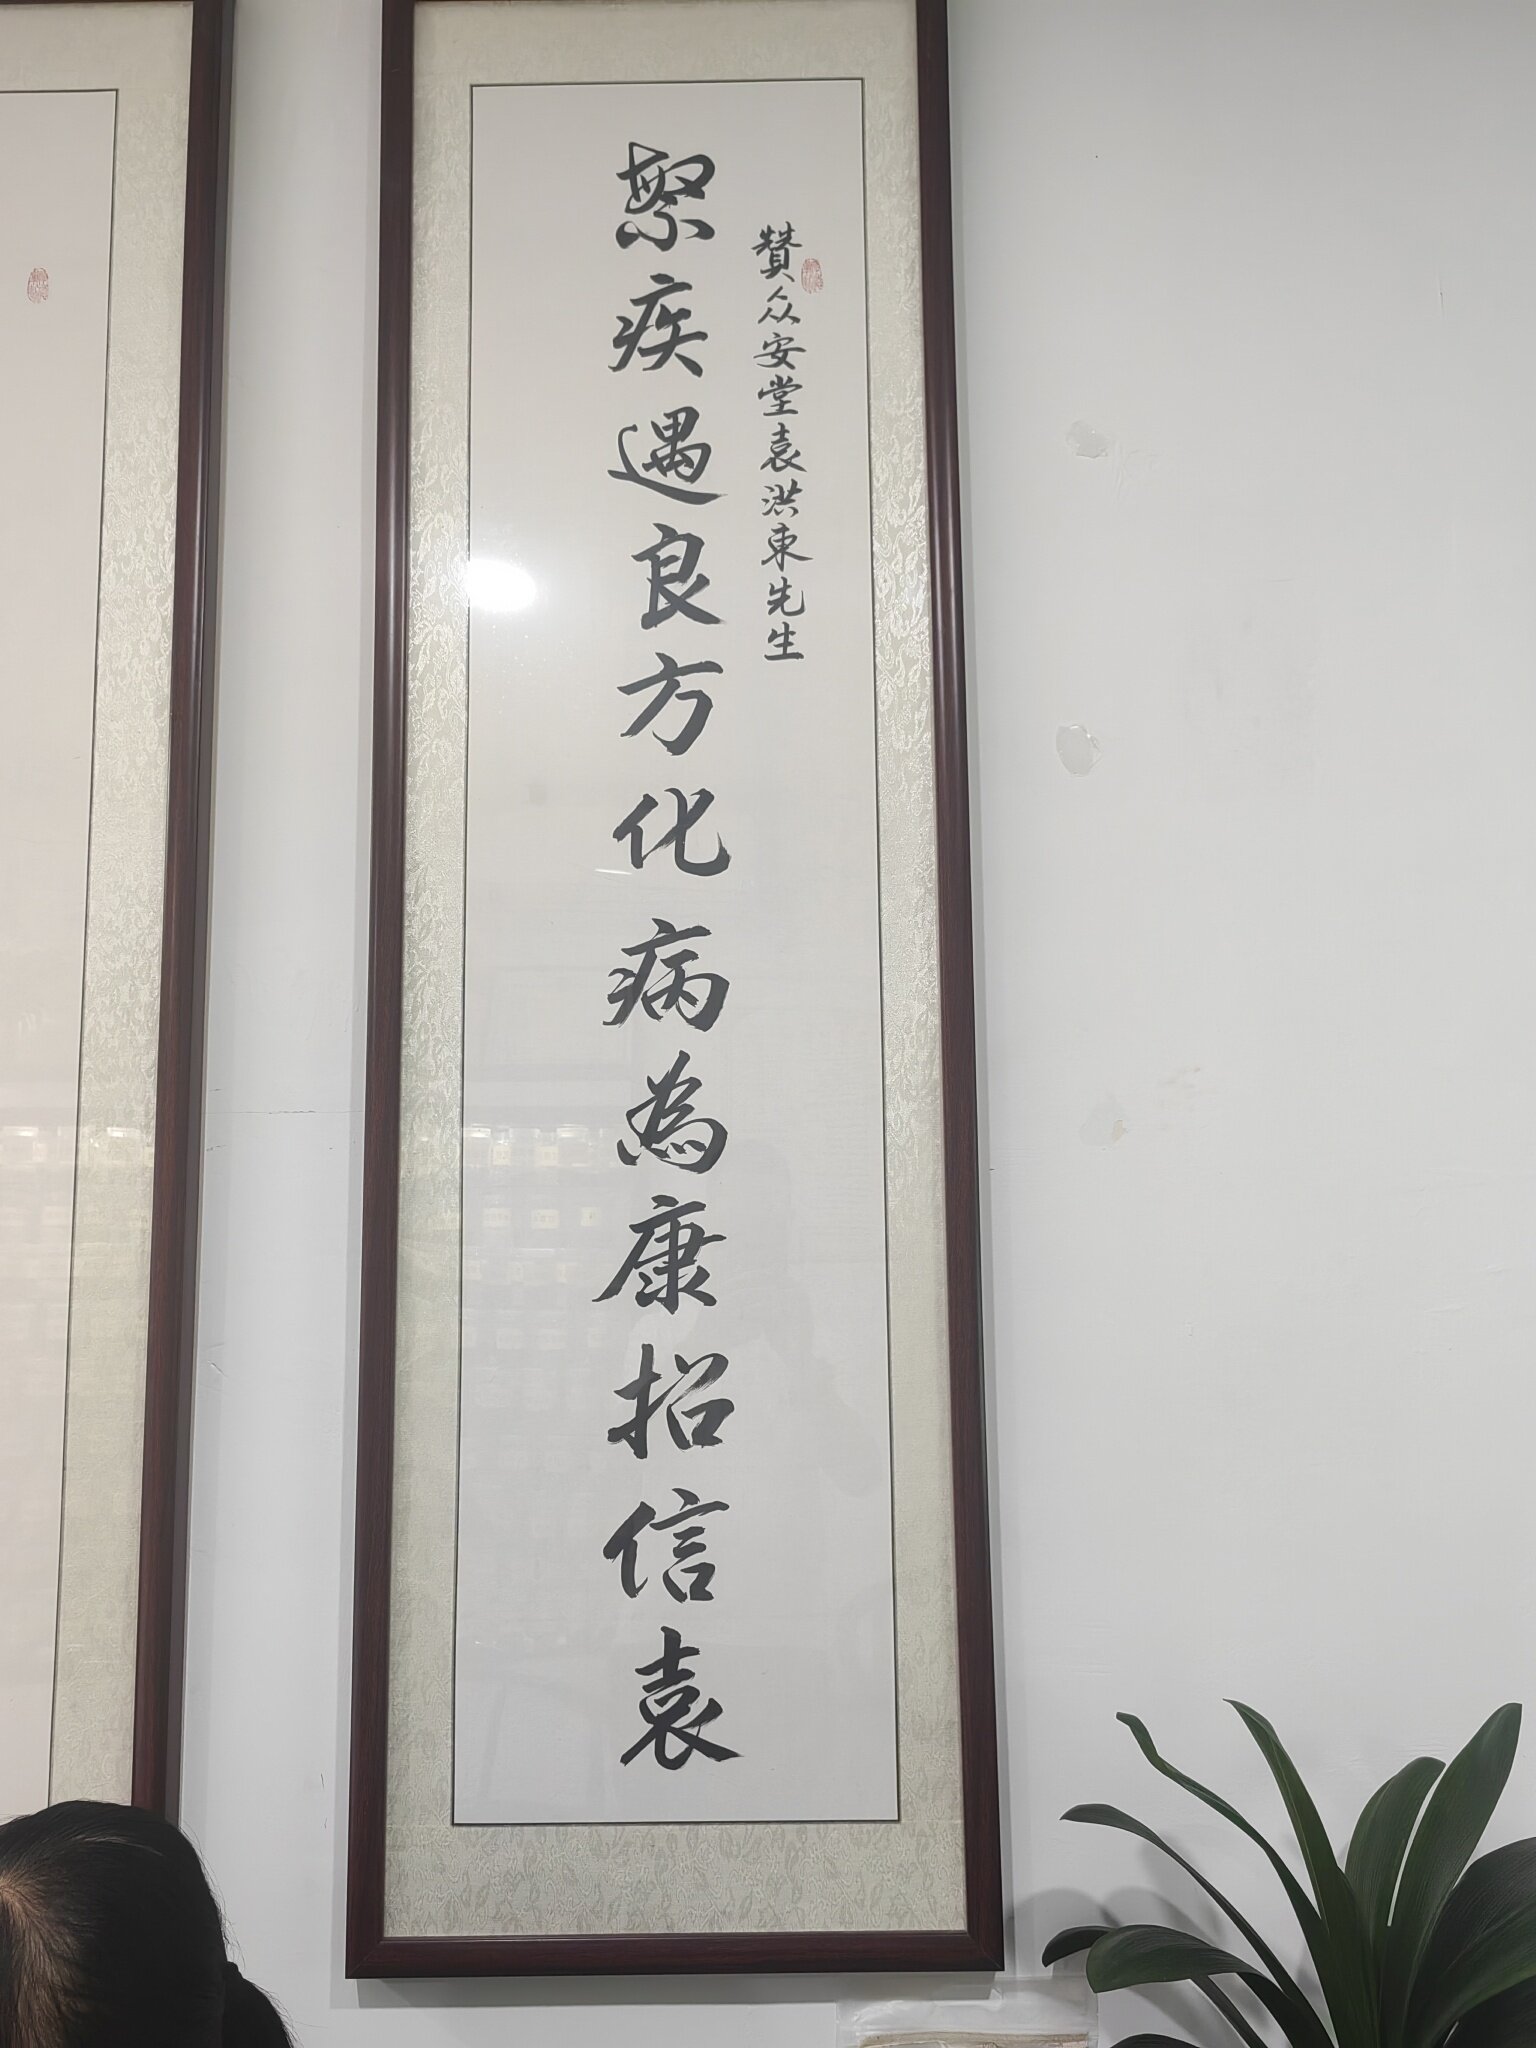 赞众安堂袁洪東先生
繁疾遇良方化病為康招信袁